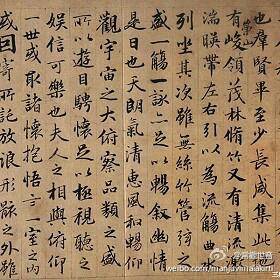 也羣賢畢至少長咸集此地
有崇山峻領茂林脩竹又有清流激
湍暎帶左右引以為流觴曲水
列坐其次雖無絲竹管弦之
盛一觴一詠亦足以暢敘幽情
是日也天朗氣清惠風和暢仰
觀宇宙之大俯察品類之盛
所以遊目騁懷足以極視聽之
娛信可樂也夫人之相與俯仰
一世或取諸懷抱悟言一室之內
或因寄所託放浪形骸之外雖